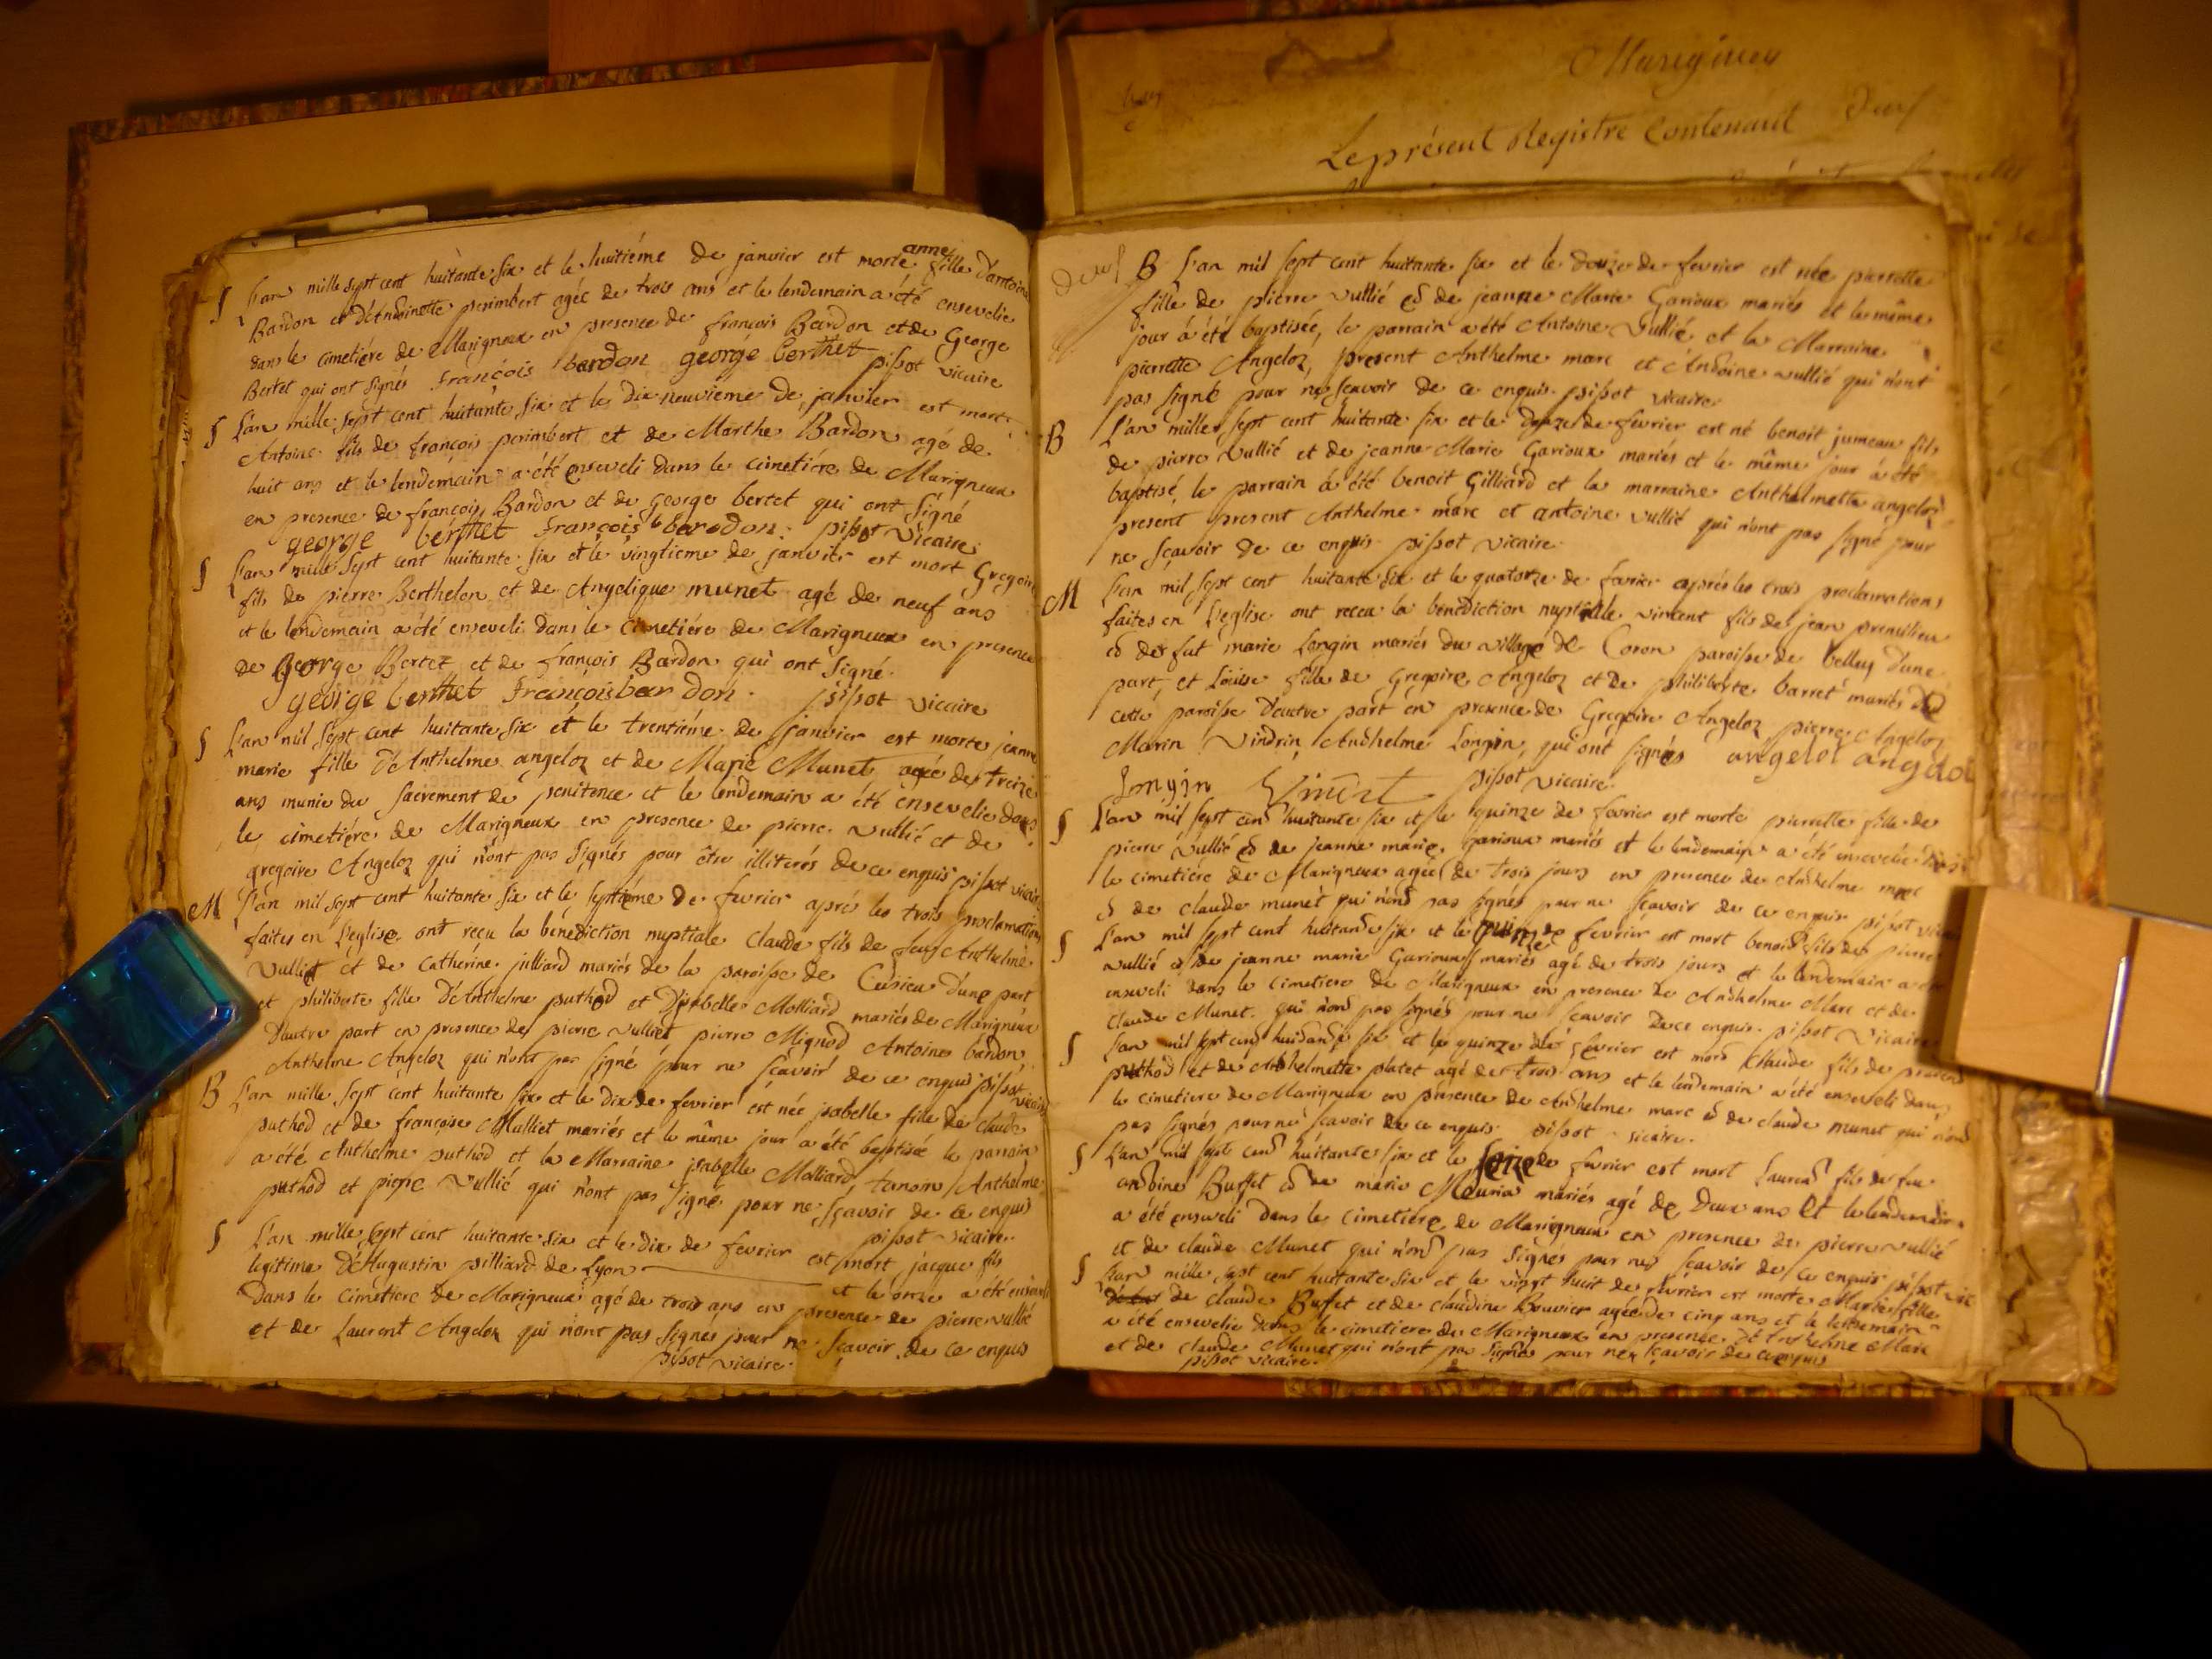 S L'an mille sept cent huitante six et le huitiéme de janvier est morte anne fille d'antoine
Bardon et d'Antoinette perimbert agée de trois ans et le lendemain a été ensevelie
dans le cimetiére de Marigneux en presence de françois Bardon et de George
Bertet qui ont signés françois bardon george berthet pissot vicaire
S L'an mille sept cent huitante six et le dix neuvieme de janvier est mort
Antoine fils de françois perimbert et de Marthe Bardon agé de
huit ans et le lendemain a été enseveli dans le cimetiére de Marigneux
en presence de françois Bardon et de George bertet qui ont signé
george berthet françois barodon pissot vicaire
S L'an mille sept cent huitante six et le vingtieme de janvier est mort Gregoire
fils de pierre Berthelon et de Angelique munet agé de neuf ans
et le lendemain a été enseveli dans le cimetiére de Marigneux en presence
de George Bertet et de françois Bardon qui ont signé
george berthet françois bardon pissot vicaire
S L'an mil sept cent huitante six et le trentiéme de janvier est morte jeanne
marie fille d'Anthelme angeloz et de Marie Munet agée de treize
ans munie du sacrement de penitence et le lendemain a été ensevelie dans
le cimetiére de Marigneux en presence de pierre vullié et de
gregoire Angeloz qui n'ont pas signés pour être illiterés de ce enquis pissot vicaire
M L'an mil sept cent huitante six et le septiéme de fevrier aprés les trois proclamations
faites en l'eglise ont recu la benediction nuptiale Claude fils de feu Anthelme
Vulliet et de Catherine julliard mariés de la paroisse de Cusieu d'une part
et philiberte fille d'Anthelme puthod et d'isabelle Molliard mariés de Marigneux
d'autre part en presence de pierre vulliet pierre Mignod Antoine bardon
Anthelme Angeloz qui n'ont pas signé pour ne sçavoir de ce enquis pissot vicaire
B L'an mille sept cent huitante six et le dix de fevrier est née isabelle fille de claude
puthod et de françoise Mulliet mariés et le même jour a été baptisée le parrain
a été Anthelme puthod et la Marraine isabelle Molliard temoin Anthelme
puthod et pierre vullié qui n'ont pas signé pour ne sçavoir de ce enquis
pissot vicaire
S L'an mille sept cent huitante six et le dix de fevrier est mort jacque fils
legitime d'Augustin pilliard de Lyon et le onze a été enseveli
dans le cimetiere de Marigneux agé de trois ans en presence de pierre vullié
et de Laurent Angeloz qui n'ont pas signés pour ne scavoir de ce enquis
pissot vicaire
Marigneu
Le présent Registre Contenant
deux
B L'an mil sept cent huitante six et le douze de fevrier est née pierrette
fille de pierre vullié et de jeanne Marie Garioux mariés et le même
jour a été baptisée, le parrain a été Antoine Vullié et la Marraine
pierrette Angeloz, present Anthelme marc et Antoine vullié qui n'ont
pas signé pour ne sçavoir de ce enquis pissot vicaire
B L'an mille sept cent huitante six et le douze de fevrier est né benoit jumeau fils
de pierre vullié et de jeanne Marie Garioux mariés et le même jour a été
baptisé, le parrain a été benoit Gilliard et la marraine Anthelmette angeloz
present present Anthelme marc et antoine vullié qui n'ont pas signé pour
ne scavoir de ce enquis pissot vicaire
M L'an mil sept cent huitante six et le quatorze de fevrier aprés les trois proclamations
faites en l'eglise ont receu la benediction nuptiale vincent fils de jean premilieu
et de fut marie Longin mariés du village de Coron paroisse de belley d'une
part, et Louise fille de Gregoire Angeloz et de philiberte barret mariés de
cette paroisse d'autre part en presence de Gregoire Angeloz pierre Angeloz
Marin Vindrin Anthelme Longin qui ont signés angelot angeloz
Longin Vincent pissot vicaire
S L'an mil sept cent huitante six et le quinze de fevrier est morte pierrette fille de
pierre vullié et de jeanne marie Garioux mariés et le lendemain a été ensevelie dans
le cimetiére de Marigneux agée de trois jours en presence de Anthelme marc
et de claude munet qui n'ont pas signés pour ne scavoir de ce enquis pissot vicaire
S L'an mil sept cent huitante six et le quinze de fevrier est mort benoit fils de pierre
vullié et de jeanne marie Garioux mariés agé de trois jours et le lendemain a été
enseveli dans le cimetiere de Marigneux en presence de Anthelme Marc et de
claude Munet qui n'ont pas signés pour ne scavoir de ce enquis pissot vicaire
S L'an mil sept cent huitante six et le quinze de fevrier est mort Claude fils de
puthod et de Anthelmette platet agé de trois ans et le lendemain a été enseveli dans
le cimetiere de Marigneux en presence de Anthelme marc et de claude munet qui n'ont
pas signés pour ne scavoir de ce enquis pissot vicaire
S L'an mil sept cent huitante six et le seize de fevrier est mort Laurent fils de feu
antoine Buffet et de marie mariés agé de deux ans et le lendemain
a été enseveli dans le cimetiére de Marigneux en presence de pierre vullié
et de claude Munet qui n'ont pas signés pour ne scavoir de ce enquis pissot vic
S L'an mille sept cent huitante six et le vingt huit de fevrier est morte Marie fille
de claude Bufet et de claudine Bouvier agée de cinq ans et le lendemain
a été ensevelie dans le cimetiere de Marigneux en presence de Anthelme Marc
et de claude Munet qui n'ont pas signés pour ne scavoir de ce enquis
pissot vicaire